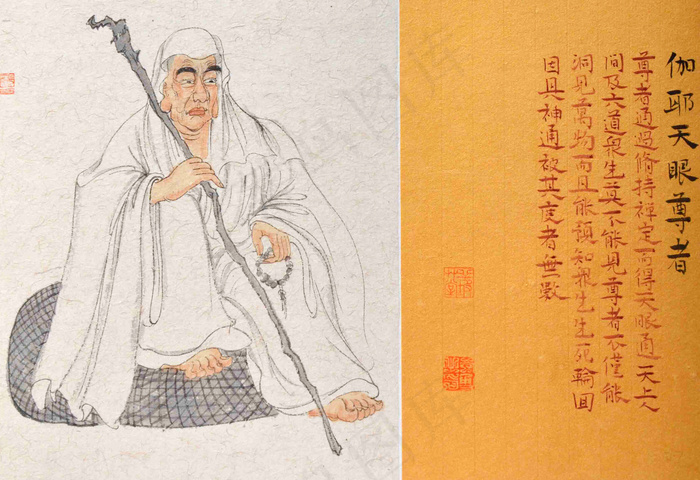 伽耶天眼尊者
尊者通過脩持禅定而得天眼通天上人
間及六道衆生莫不能見尊者不僅能
洞見萬物而且能預知衆生生死輪回
因具神通被其度者無數